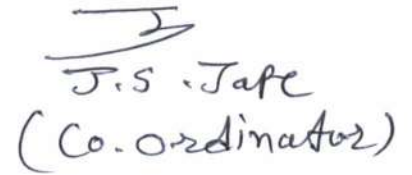 J.S. Jape
(Co-ordinator)